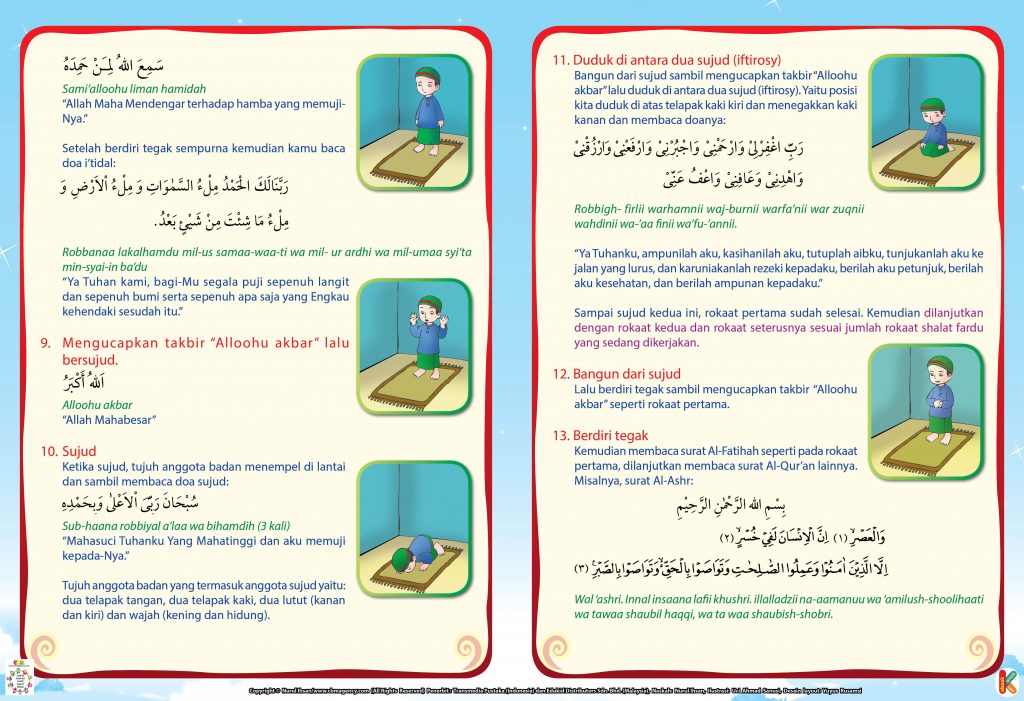 سَمِعَ اللهُ لِمَنْ حَمِدَهُ
Sami'alloohu liman hamidah
“Allah Maha Mendengar terhadap hamba yang memuji-
Nya.”
Setelah berdiri tegak sempurna kemudian kamu baca
doa i’tidal:
رَبَّنَالَكَ الْحَمْدُ مِلْءُ السَّمٰوَاتِ وَ مِلْءُ اْلاَرْضِ وَ
مِلْءُ مَا شِئْتَ مِنْ شَيْئٍ بَعْدُ.
Robbanaa lakalhamdu mil-us samaa-waa-ti wa mil- ur ardhi wa mil-umaa syi’ta
min-syai-in ba’du
“Ya Tuhan kami, bagi-Mu segala puji sepenuh langit
dan sepenuh bumi serta sepenuh apa saja yang Engkau
kehendaki sesudah itu.”
9. Mengucapkan takbir “Alloohu akbar” lalu
bersujud.
اَللهُ اَكْبَرُ
Alloohu akbar
“Allah Mahabesar”
10. Sujud
Ketika sujud, tujuh anggota badan menempel di lantai
dan sambil membaca doa sujud:
سُبْحَانَ رَبِّيَ اْلاَعْلٰى وَبِحَمْدِهِ
Sub-haana robbiyal a’laa wa bihamdih (3 kali)
“Mahasuci Tuhanku Yang Mahatinggi dan aku memuji
kepada-Nya.”
Tujuh anggota badan yang termasuk anggota sujud yaitu:
dua telapak tangan, dua telapak kaki, dua lutut (kanan
dan kiri) dan wajah (kening dan hidung).
11. Duduk di antara dua sujud (iftirosy)
Bangun dari sujud sambil mengucapkan takbir “Alloohu
akbar” lalu duduk di antara dua sujud (iftirosy). Yaitu posisi
kita duduk di atas telapak kaki kiri dan menegakkan kaki
kanan dan membaca doanya:
رَبِّ اغْفِرْلِيْ وَارْحَمْنِيْ وَاجْبُرْنِيْ وَارْفَعْنِيْ وَارْزُقْنِيْ
وَاهْدِنِيْ وَعَافِنِيْ وَاعْفُ عَنِّيْ
Robbigh- firlii warhamnii waj-burnii warfa’nii war zuqnii
wahdinii wa-’aa finii wa’fu-’annii.
“Ya Tuhanku, ampunilah aku, kasihanilah aku, tutuplah aibku, tunjukanlah aku ke
jalan yang lurus, dan karuniakanlah rezeki kepadaku, berilah aku petunjuk, berilah
aku kesehatan, dan berilah ampunan kepadaku.”
Sampai sujud kedua ini, rokaat pertama sudah selesai. Kemudian dilanjutkan
dengan rokaat kedua dan rokaat seterusnya sesuai jumlah rokaat shalat fardu
yang sedang dikerjakan.
12. Bangun dari sujud
Lalu berdiri tegak sambil mengucapkan takbir “Alloohu
akbar” seperti rokaat pertama.
13. Berdiri tegak
Kemudian membaca surat Al-Fatihah seperti pada rokaat
pertama, dilanjutkan membaca surat Al-Qur’an lainnya.
Misalnya, surat Al-Ashr:
بِسْمِ اللهِ الرَّحْمٰنِ الرَّحِيْمِ
وَالْعَصْرِۙ (١) اِنَّ الْاِنْسَانَ لَفِيْ خُسْرٍۙ (٢)
اِلَّا الَّذِيْنَ اٰمَنُوْا وَعَمِلُوا الصّٰلِحٰتِ وَتَوَاصَوْا بِالْحَقِّ ەۙ وَتَوَاصَوْا بِالصَّبْرِ (٣)
Wal ‘ashri. Innal insaana lafii khushri. illalladzii na-aamanuu wa ‘amilush-shoolihaati
wa tawaa shaubil haqqi, wa ta waa shaubish-shobri.
Copyright © Nurul Ihsan/www.cbmagency.com (All Rights Reserved) Penerbit: Transmedia Pustaka (Indonesia) dan Edukid Distributors Sdn. Bhd. (Malaysia), Naskah: Nurul Ihsan, Ilustrasi: Uci Ahmad Sanusi, Desain layout: Yuyus Rusamsi